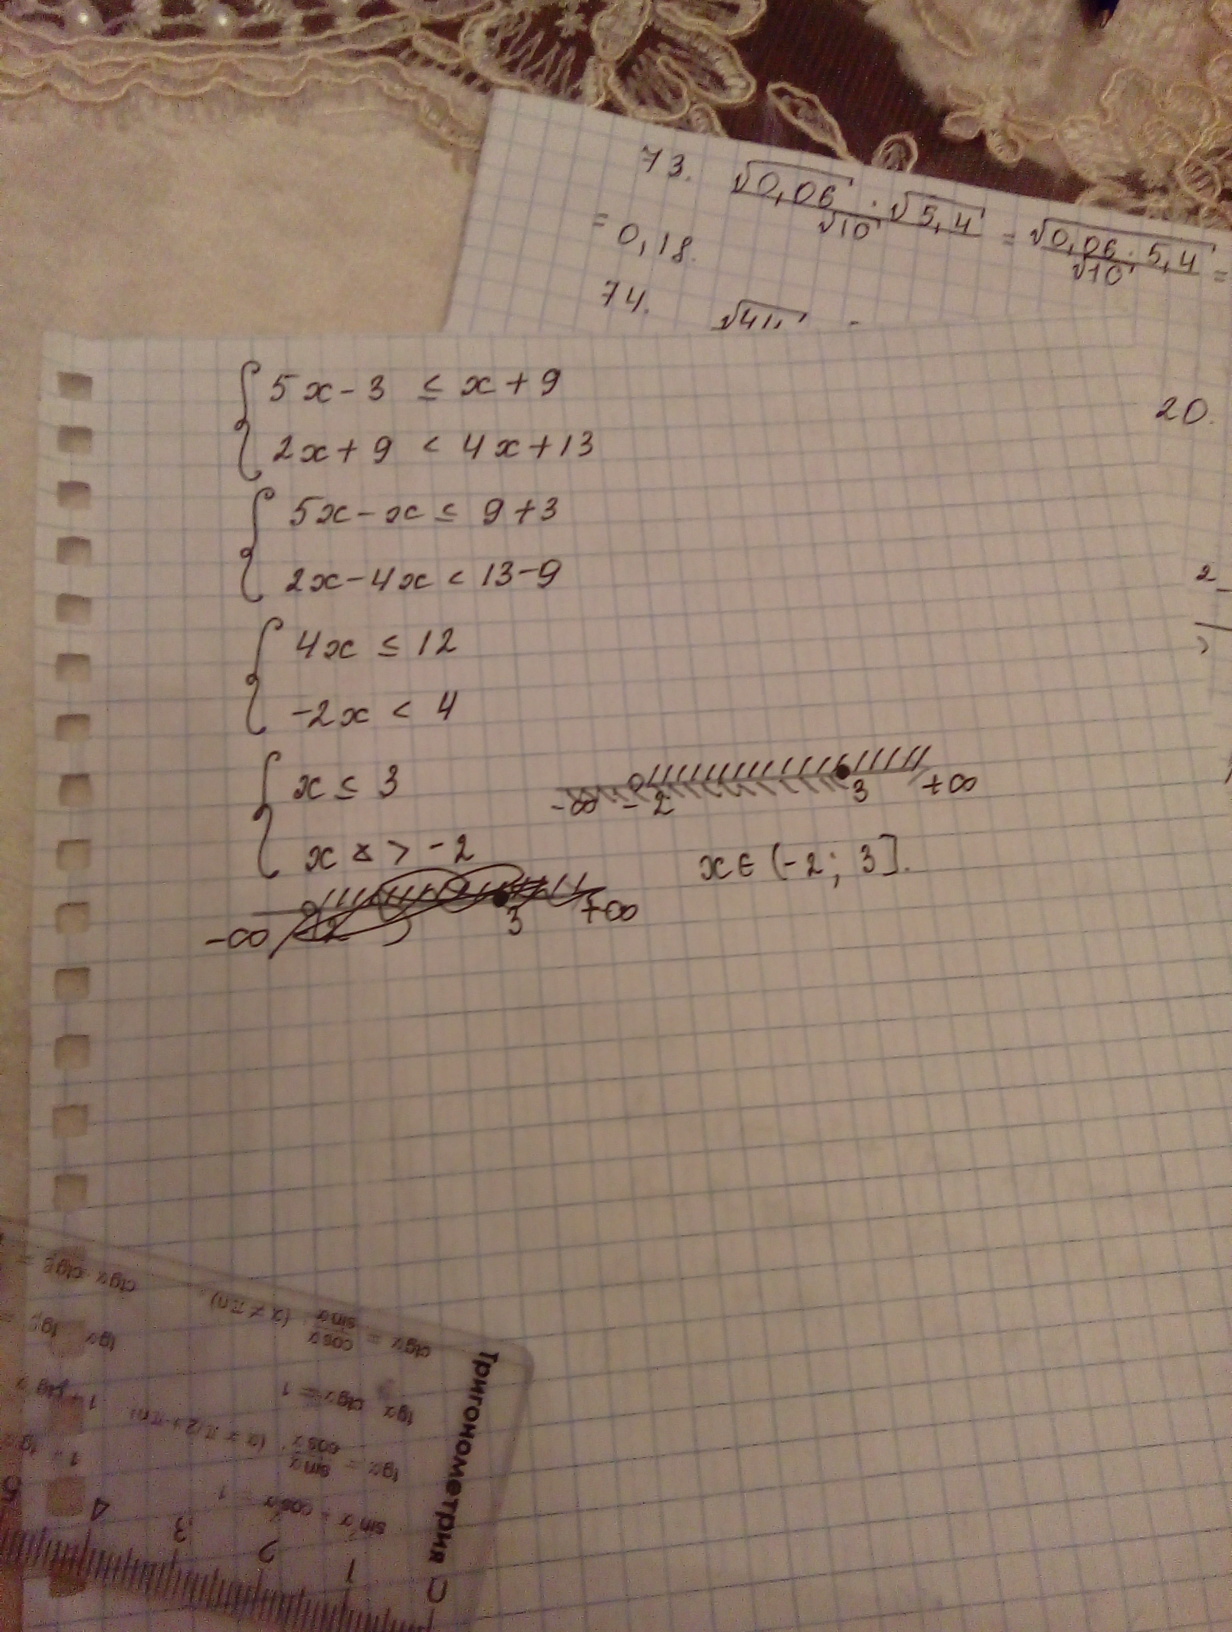 73. √0,06 · √5,4 / √10 = √0,06 · 5,4 / √10 =
= 0,18.
74. √4
5x - 3 ≤ x + 9
2x + 9 < 4x + 13
5x - x ≤ 9 + 3
2x - 4x < 13 - 9
4x ≤ 12
-2x < 4
x ≤ 3
x > -2
-∞ 2 3 +∞
-∞ -2 3 +∞
x ∈ (-2; 3].
20.
2
Тригонометрия
sin²α + cos²α = 1
tgα = sinα / cosα (α ≠ π/2 + πn)
tgα ctgα = 1
ctgα = cosα / sinα (α ≠ πn)
1 2 3 4 5